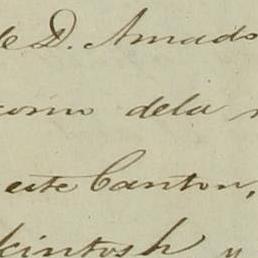 de D. Amado
como dela
este Canton,
kintosh y